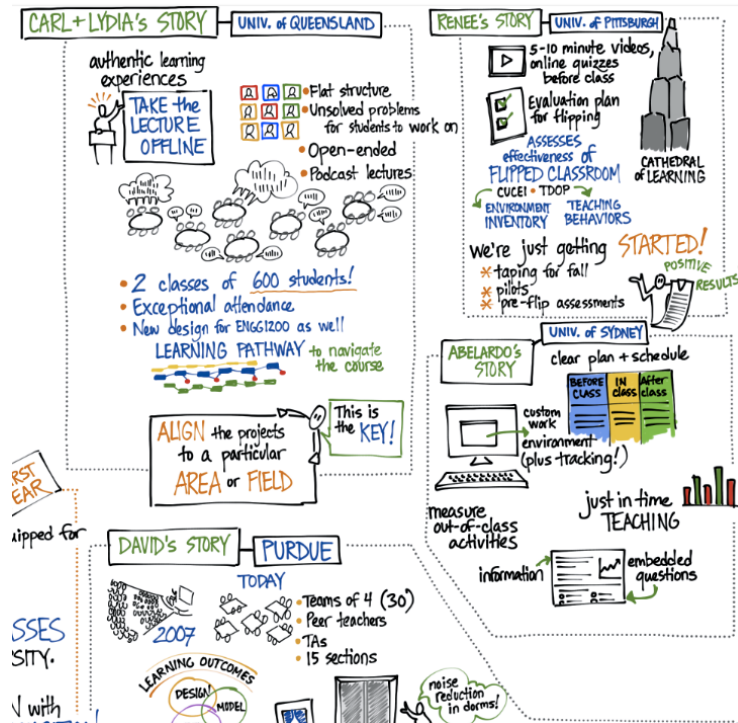 CARL + LYDIA'S STORY
UNIV. of QUEENSLAND
authentic learning
experiences
TAKE the
LECTURE
OFFLINE
• Flat structure
• Unsolved problems
for students to work on
• Open-ended
• Podcast lectures
• 2 classes of 600 students!
• Exceptional attendance
• New design for ENGG1200 as well
LEARNING PATHWAY to navigate
the course
ALIGN the projects
to a particular
AREA or FIELD
This is
the KEY!
RENEE'S STORY
UNIV. of PITTSBURGH
5-10 minute videos,
online quizzes
before class
Evaluation plan
for flipping
ASSESSES
effectiveness of
FLIPPED CLASSROOM
CUCEI • TDOP
ENVIRONMENT
INVENTORY
TEACHING
BEHAVIORS
CATHEDRAL
of LEARNING
We're just getting STARTED!
* taping for fall
* pilots
* pre-flip assessments
POSITIVE
RESULTS
ABELARDO'S
STORY
UNIV. of SYDNEY
clear plan + schedule
BEFORE
CLASS
IN
class
After
class
custom
work
environment
(plus tracking!)
measure
out-of-class
activities
just in time
TEACHING
information
embedded
questions
RST
EAR
uipped for
SSES
SITY.
with
DAVID'S STORY
PURDUE
2007
TODAY
• Teams of 4 (30)
• Peer teachers
• TAs
• 15 sections
LEARNING OUTCOMES
DESIGN
MODEL
noise
reduction
in dorms!